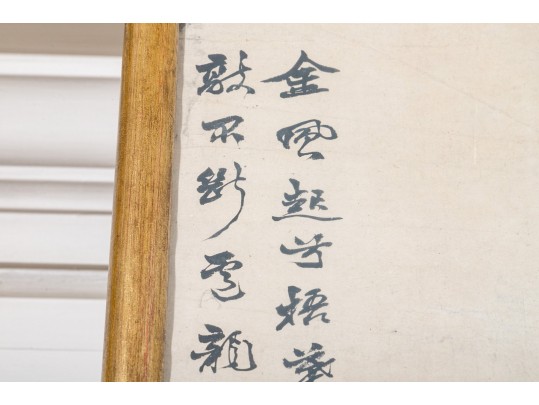 金風起兮梧葉
敲不斷龍